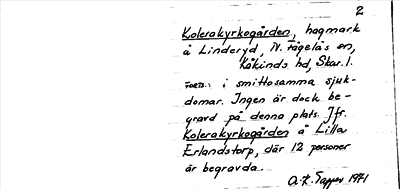 2
Kolerakyrkogården, hagmark
å Linderyd, N. Fågelås sn,
Kåkinds hd, Skar. l.
FORTS.: i smittosamma sjuk-
domar. Ingen är dock be-
gravd på denna plats. Jfr.
Kolerakyrkogården å Lilla
Erlandstorp, där 12 personer
är begravda.
A.-K. 1971